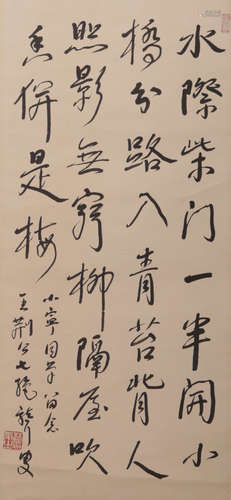 水際柴门一半開小
橋分路入青苔背人
照影無窮柳隔屋吹
香併是梅
小寧同學留念
王荆公七绝